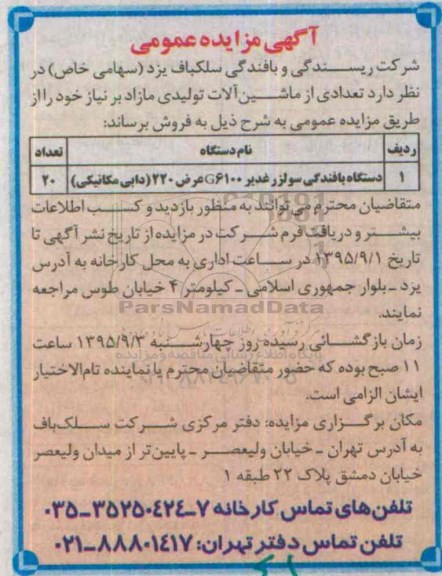 آگهی مزایده عمومی
شرکت ریسندگی و بافندگی سلکباف یزد (سهامی خاص) در
نظر دارد تعدادی از ماشین‌آلات تولیدی مازاد بر نیاز خود را از
طریق مزایده عمومی به شرح ذیل به فروش برساند:
ردیف نام دستگاه تعداد
۱ دستگاه بافندگی سولزر غدیر G۶۱۰۰ عرض ۲۲۰ (دابی مکانیکی) ۲۰
متقاضیان محترم می‌توانند به منظور بازدید و کسب اطلاعات
بیشتر و دریافت فرم شرکت در مزایده از تاریخ نشر آگهی تا
تاریخ ۱۳۹۵/۹/۱ در ساعت اداری به محل کارخانه به آدرس
یزد - بلوار جمهوری اسلامی - کیلومتر ۴ خیابان طوس مراجعه
نمایند.
ParsNamadData
زمان بازگشائی رسیده روز چهارشنبه ۱۳۹۵/۹/۳ ساعت
۱۱ صبح بوده که حضور متقاضیان محترم یا نماینده تام‌الاختیار
ایشان الزامی است.
مکان برگزاری مزایده: دفتر مرکزی شرکت سلک‌باف
به آدرس تهران - خیابان ولیعصر - پایین‌تر از میدان ولیعصر
خیابان دمشق پلاک ۲۲ طبقه ۱
تلفن‌های تماس کارخانه ۷-۳۵۲۵۰۴۲۴-۰۳۵
تلفن تماس دفتر تهران: ۸۸۸۰۱۴۱۷-۰۲۱